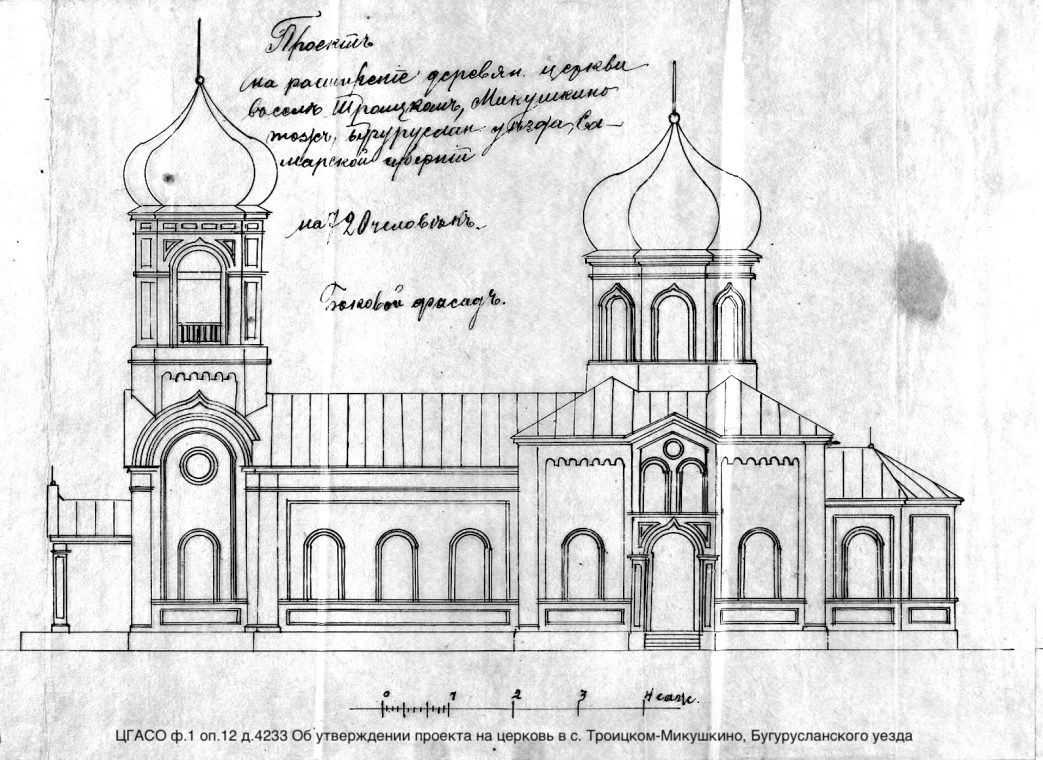 Проектъ
на расширенiе деревян. церкви
въ селѣ Троицкомъ, Микушкино
тожъ, Бугуруслан. уѣзда, Са-
марской губернiи
на 720 человѣкъ.
Боковой фасадъ.
0 1 2 3 4 саж.
ЦГАСО ф.1 оп.12 д.4233 Об утверждении проекта на церковь в с. Троицком-Микушкино, Бугурусланского уезда